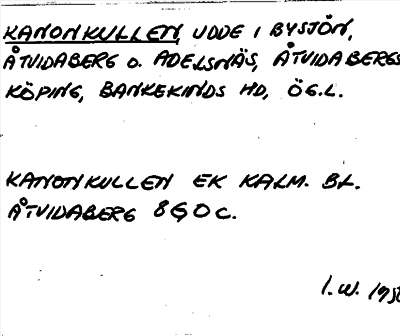 KANONKULLEN, UDDE I BYSJÖN,
ÅTVIDABERG O. ADELSNÄS, ÅTVIDABERGS
KÖPING, BANKEKINDS HD, ÖG.L.
KANONKULLEN EK KALM. BL.
ÅTVIDABERG 8G0c.
I.W.